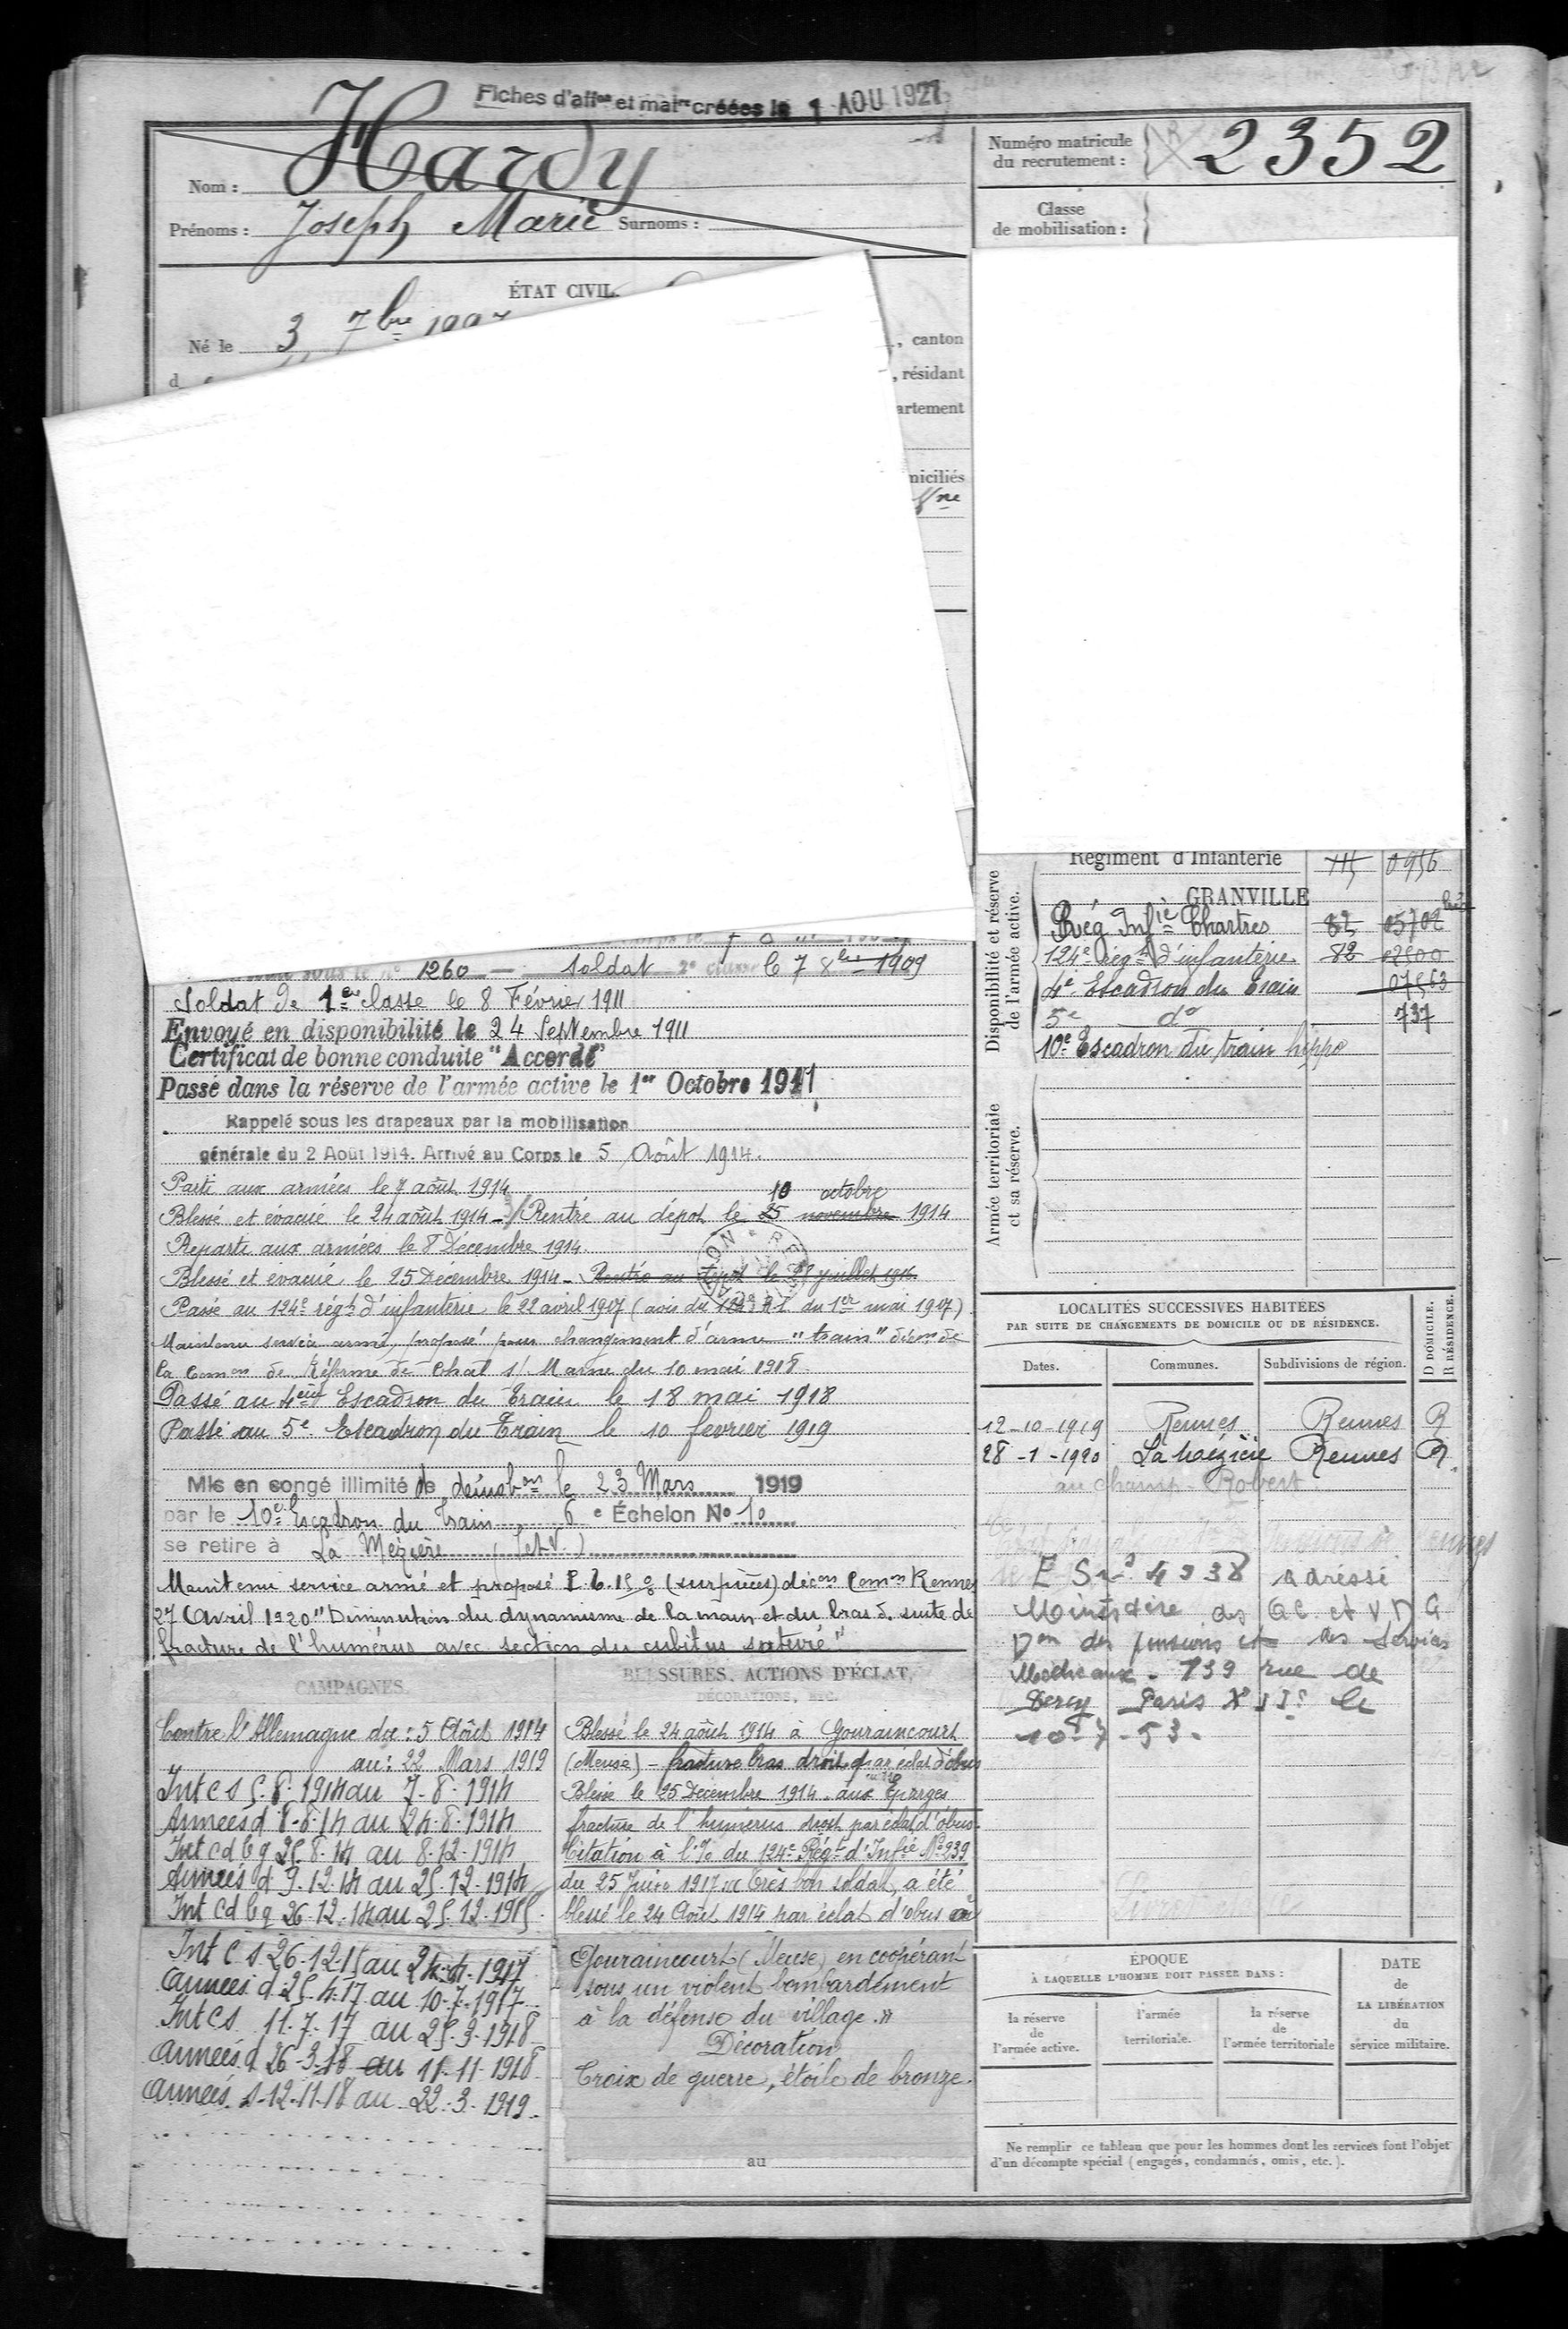 Fiches d'affon et matre créées le 1 AOU 1927
Nom : Hardy
Prénoms : Joseph Marie Surnoms :
Numéro matricule
du recrutement : 2352
Classe
de mobilisation :
ÉTAT CIVIL.
Né le 3 7bre
, canton
, résidant
artement
miciliés
1260 — Soldat 2e classe le 7 8bre 1909
Soldat de 1ère classe le 8 Février 1911
Envoyé en disponibilité le 24 Septembre 1911
Certificat de bonne conduite "Accordé"
Passé dans la réserve de l'armée active le 1er Octobre 1911
Rappelé sous les drapeaux par la mobilisation
générale du 2 Août 1914. Arrivé au Corps le 5 Août 1914.
Parti aux armées le 7 août 1914
10 octobre
Blessé et évacué le 24 août 1914 - Rentré au dépot le 25 novembre 1914
Reparti aux armées le 8 Décembre 1914.
Blessé et évacué le 25 Décembre 1914 - Rentré au dépot le 28 juillet 1916.
Passé au 124e régt d'infanterie le 22 avril 1917 (avis du 124e R.I. du 1er mai 1917)
Maintenu service armé, proposé pour changement d'arme "train" décon de
la Comon de Réforme de Chal s/ Marne du 10 mai 1918.
Passé au 4ème Escadron du Train le 18 mai 1918
Passé au 5e Escadron du Train le 10 fevrier 1919
Mis en congé illimité de démobon le 23 Mars 1919
par le 10e Escadron du Train 6e Échelon No 10
se retire à La Mézière (I et V.)
Maintenu service armé et proposé P.t. 15% (sur pièces) décon Comon Rennes
27 Avril 1920 "Diminution du dynamisme de la main et du bras d. suite de
fracture de l'humérus avec section du cubitus suturé"
CAMPAGNES.
Contre l'Allemagne du : 5 Août 1914
au : 22 Mars 1919
Int c s 5.8.1914 au 7-8-1914
Armées d 8-8-14 au 24.8.1914
Int cd bg 25.8.14 au 8.12.1914
Armées d 9.12.14 au 25.12.1914
Int cd bg 26.12.14 au 25.12.1915.
Int C s 26.12.15 au 24.4.1917
Armées d 25.4.17 au 10.7.1917
Int C s 11.7.17 au 25.3.1918
Armées d 26.3.18 au 11.11.1918
Armées s 12.11.18 au 22.3.1919.
BLESSURES, ACTIONS D'ÉCLAT,
DÉCORATIONS, ETC.
Blessé le 24 août 1914 à Gouraincourt
(Meuse) - fracture bras droit par éclat d'obus
Blessé le 25 Décembre 1914 - aux Eparges
fracture de l'humérus droit par éclat d'obus.
Citation à l'% du 124e Régt d'Infie No 239
du 25 Juin 1917 "Très bon soldat, a été
blessé le 24 Août 1914 par éclat d'obus à
Gouraincourt (Meuse) en coopérant
sous un violent bombardement
à la défense du village."
Décoration
Croix de guerre, étoile de bronze.
au
Disponibilité et réserve
de l'armée active.
Régiment d'Infanterie 115 0956
GRANVILLE
Rég Infie Chartres 82 05702
124e régt d'infanterie 82 02500
4e Escadron du train 07563
5e do 737
10e Escadron du train hippo
Armée territoriale
et sa réserve.
LOCALITÉS SUCCESSIVES HABITÉES
PAR SUITE DE CHANGEMENTS DE DOMICILE OU DE RÉSIDENCE.
D DOMICILE.
R RÉSIDENCE.
Dates. Communes. Subdivisions de région.
12-10-1919 Rennes Rennes R
28-1-1920 La Mézière Rennes R.
au champ Robert
E S 4938 adressé
des A C et V D G
Don des pensions et des Services
Médicaux - 139 rue de
Bercy Paris XIIe le
ÉPOQUE
À LAQUELLE L'HOMME DOIT PASSER DANS :
la réserve
de
l'armée active.
l'armée
territoriale.
la réserve
de
l'armée territoriale
DATE
de
LA LIBÉRATION
du
service militaire.
Ne remplir ce tableau que pour les hommes dont les services font l'objet
d'un décompte spécial (engagés, condamnés, omis, etc.).